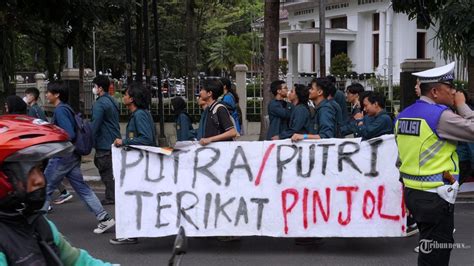 PUTRA/PUTRI
TERIKAT PINJOL!
POLISI
Tribunnews.com